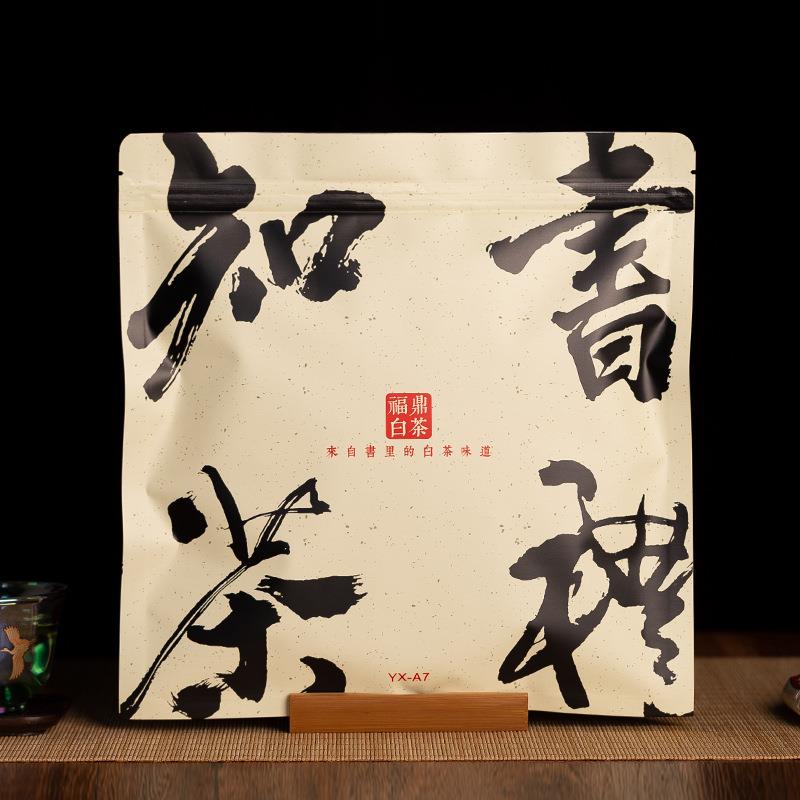 書禮
知茶
福鼎
白茶
來自書里的白茶味道
YX-A7